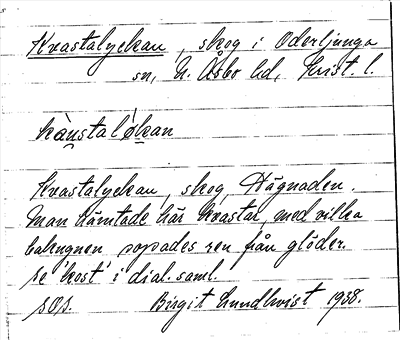 Kvastalyckan, skog i Oderljunga
sn, N. Åsbo hd, Krist. l.
Kvastalyckan, skog, Hägnaden.
Man hämtade här kvastar, med vilka
bakugnen sopades ren från glöder.
se 'kost' i dial. saml.
Birgit Lundkvist 1938.